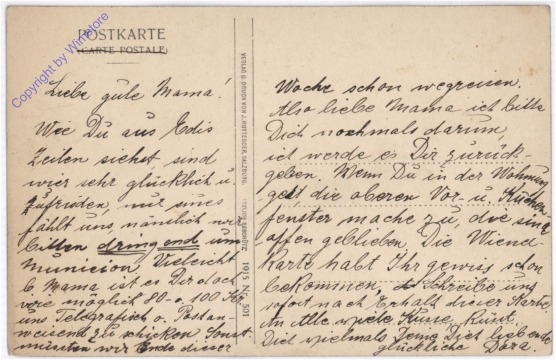 POSTKARTE
(CARTE POSTALE)
Copyright by Winstore
Liebe gute Mama!
Wie Du aus Edis
Zeilen siehst sind
wier sehr glücklich u.
zufrieden, nur eines
fählt uns, nämlich wir
bitten dringend um
Municion. Vieleicht
l. Mama ist es Dir doch
möglich 80 - o. 100 K
uns Telegrafisch o. Postan-
weisend zu schicken. Sonst
müssten wir Ende dieser
VERLAG U. DRUCK VON J. HUTTEGGER, SALZBURG.
1912 N° 201
Woche schon wegreisen.
Also liebe Mama ich bitte
Dich nochmals darum,
ich werde es Dir zurück-
geben. Wenn Du in der Wohnung
gest, die oberen Vor- u. Küchen
fenster mache zu, die sind
offen geblieben. Die Wiener
Karte habt Ihr gewiss schon
bekommen. Schreibe uns
sofort nach Erhalt dieser Karte.
An Alle viele Küsse, küsst
Dich vielmals Deine Dich liebende
glückliche Dora.